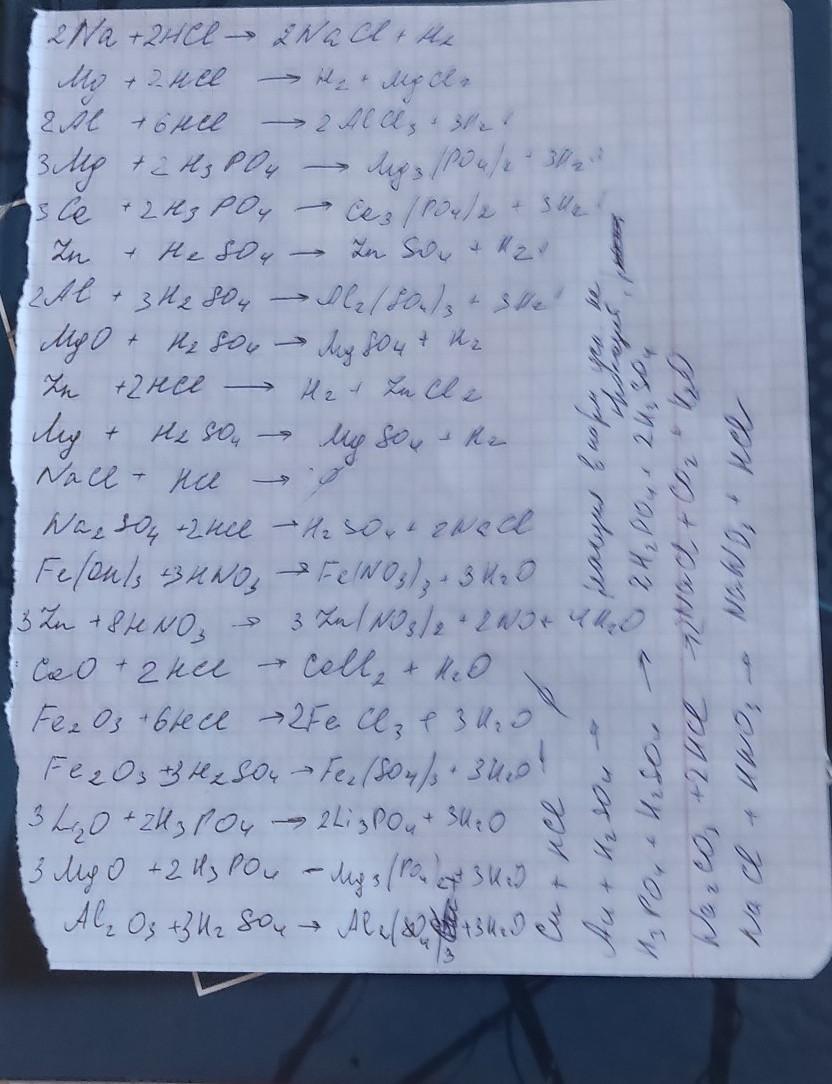 2Na + 2HCl → 2NaCl + H₂
Mg + 2HCl → H₂ + MgCl₂
2Al + 6HCl → 2AlCl₃ + 3H₂↑
3Mg + 2H₃PO₄ → Mg₃(PO₄)₂ + 3H₂↑
3Ca + 2H₃PO₄ → Ca₃(PO₄)₂ + 3H₂↑
Zn + H₂SO₄ → ZnSO₄ + H₂↑
2Al + 3H₂SO₄ → Al₂(SO₄)₃ + 3H₂↑
MgO + H₂SO₄ → MgSO₄ + H₂
Zn + 2HCl → H₂ + ZnCl₂
Mg + H₂SO₄ → MgSO₄ + H₂
NaCl + HCl → ∅
Na₂SO₄ + 2HCl → H₂SO₄ + 2NaCl
Fe(OH)₃ + 3HNO₃ → Fe(NO₃)₃ + 3H₂O
3Zn + 8HNO₃ → 3Zn(NO₃)₂ + 2NO + 4H₂O
CaO + 2HCl → CaCl₂ + H₂O
Fe₂O₃ + 6HCl → 2FeCl₃ + 3H₂O
Fe₂O₃ + 3H₂SO₄ → Fe₂(SO₄)₃ + 3H₂O
3Li₂O + 2H₃PO₄ → 2Li₃PO₄ + 3H₂O
3MgO + 2H₃PO₄ – Mg₃(PO₄)₂ + 3H₂O
Al₂O₃ + 3H₂SO₄ → Al₂(SO₄)₃ + 3H₂O
Cu + HCl ∅
Au + H₂SO₄ → реакция в норм усл не
H₃PO₄ + H₂SO₄ → 2H₂PO₄ + 2H₂SO₄
Na₂CO₃ + 2HCl → 2NaCl + CO₂ + H₂O
NaCl + HNO₃ → NaNO₃ + HCl